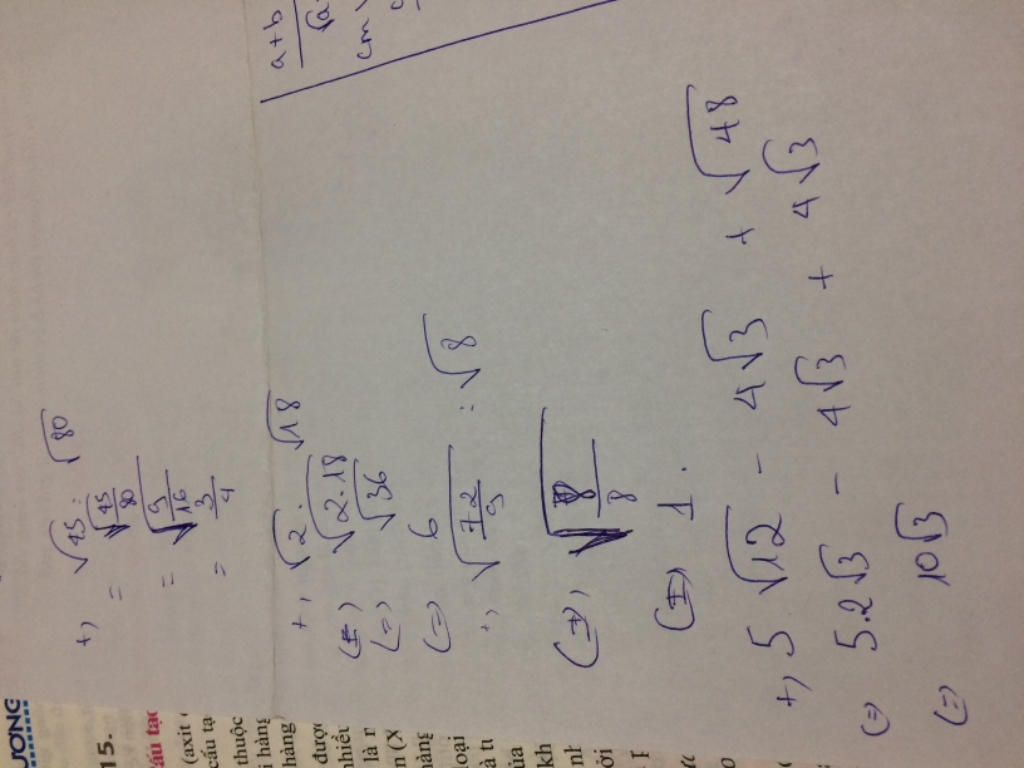 +, √45 : √80
= √45/80
= √9/16
= 3/4
+, √2 . √18
(=) √2.18
(=) √36
(=) 6
+, √72/9 : √8
(=) √8/8
(=) 1.
+, 5√12 - 4√3 + √48
(=) 5.2√3 - 4√3 + 4√3
(=) 10√3
a+b
ƯƠNG
15.
ấu tạo
(axit
cấu tạ
thuộc
hàng
hàng
được
nhiều
là
n (X
hàng
loại
à tu
ủa
kh